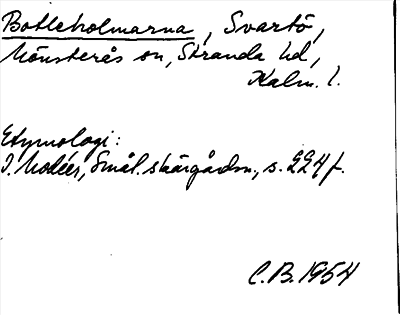 Botteholmarna, Svartö,
Mönsterås sn, Stranda hd,
Kalm. l.
Etymologi:
I. Modéer, Smål. skärgårdsn., s. 224 f.
C.B. 1954